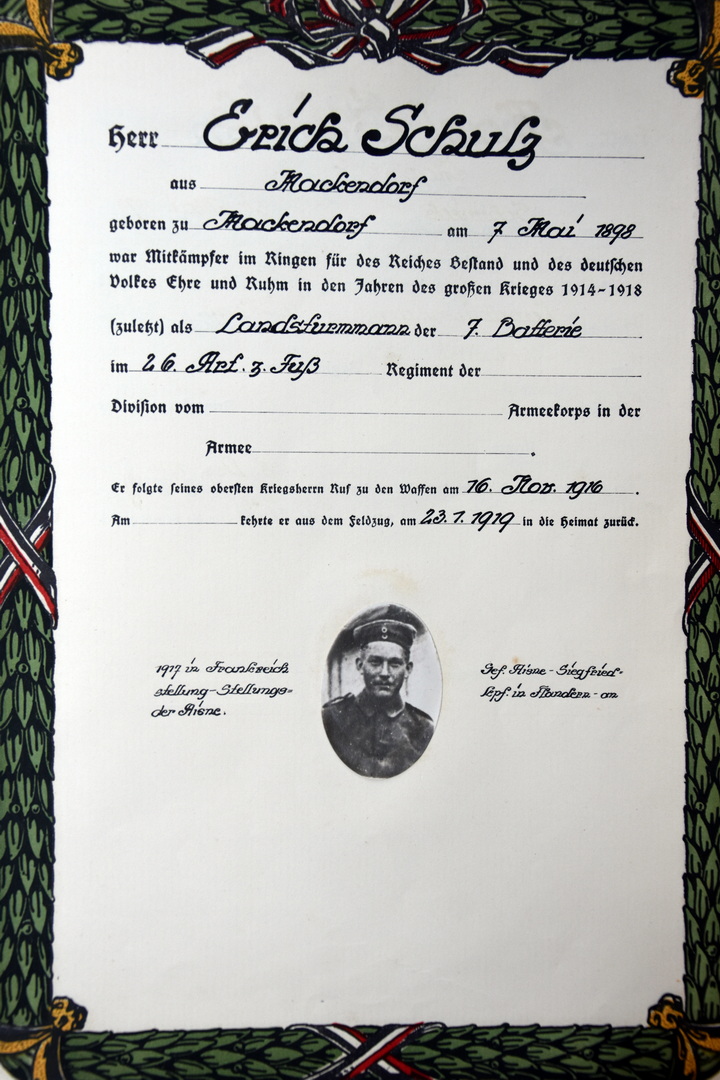 Herr Erich Schulz
aus Mackendorf
geboren zu Mackendorf am 7. Mai 1898
war Mitkämpfer im Ringen für des Reiches Bestand und des deutschen
Volkes Ehre und Ruhm in den Jahren des großen Krieges 1914-1918
(zuletzt) als Landsturmmann der 7. Batterie
im 26. Art. z. Fuß Regiment der
Division vom Armeekorps in der
Armee .
Er folgte seines obersten Kriegsherrn Ruf zu den Waffen am 16. Nov. 1916 .
Am kehrte er aus dem Feldzug, am 23.1.1919 in die Heimat zurück.
1917 in Frankreich Gef. Aisne - Siegfried-
stellung - Stellungs= kpf. in Flandern - an
der Aisne.